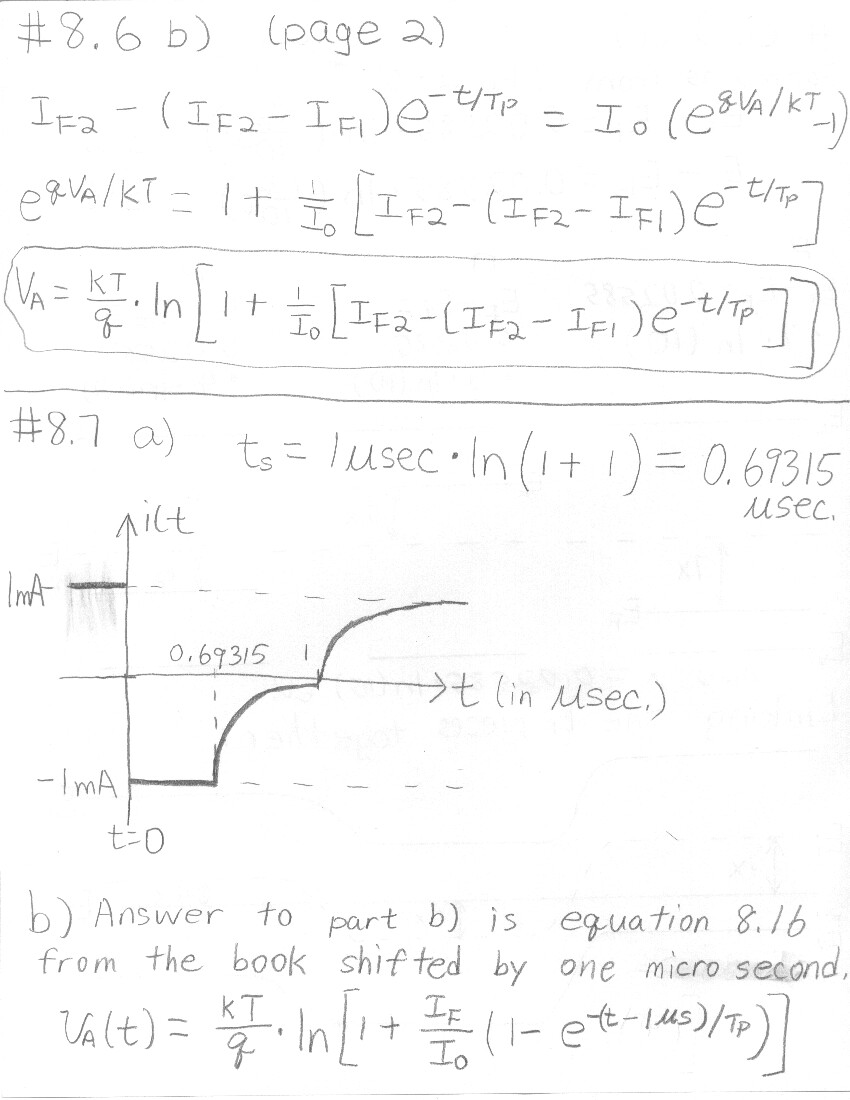 #8.6 b) (page 2)
I_F2 − (I_F2 − I_F1)e^(−t/τp) = I_0 (e^(qV_A/kT) −1)
e^(qV_A/kT) = 1 + 1/I_0 [I_F2 − (I_F2 − I_F1)e^(−t/τp)]
V_A = kT/q · ln[1 + 1/I_0 [I_F2 − (I_F2 − I_F1)e^(−t/τp)]]
#8.7 a) t_s = 1μsec · ln(1 + 1) = 0.69315
μsec.
i(t
1mA
0.69315 1
t (in μsec.)
−1mA
t=0
b) Answer to part b) is equation 8.16
from the book shifted by one micro second.
V_A(t) = kT/q · ln[1 + I_F/I_0 (1 − e^(−(t−1μs)/τp))]